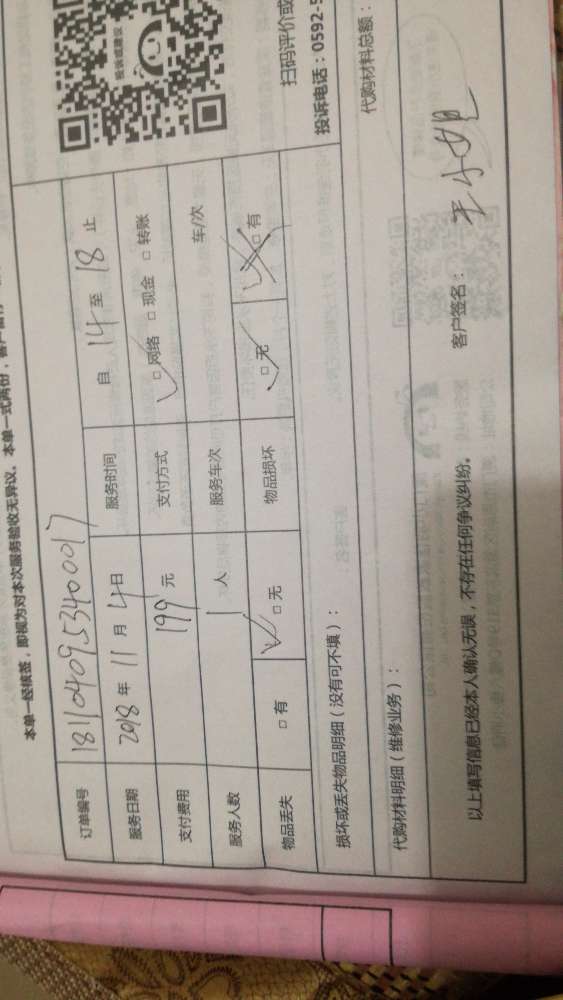 本单一经核签，即视为对本次服务验收无异议。本单一式两份，客户留存
订单编号 181104095340017
服务日期 2018 年 11 月 4 日 服务时间 自 14 至 18 止
支付费用 199 元 支付方式 □ 网络 □ 现金 □ 转账
服务人数 1 人 服务车次 车/次
物品丢失 □ 有 □ 无 物品损坏 □ 无 □ 有
投诉或建议
扫码评价或
投诉电话：0592-5
损坏或丢失物品明细（没有可不填）：
代购材料明细（维修业务）： 代购材料总额：
以上填写信息已经本人确认无误，不存在任何争议纠纷。 客户签名： 王小姐